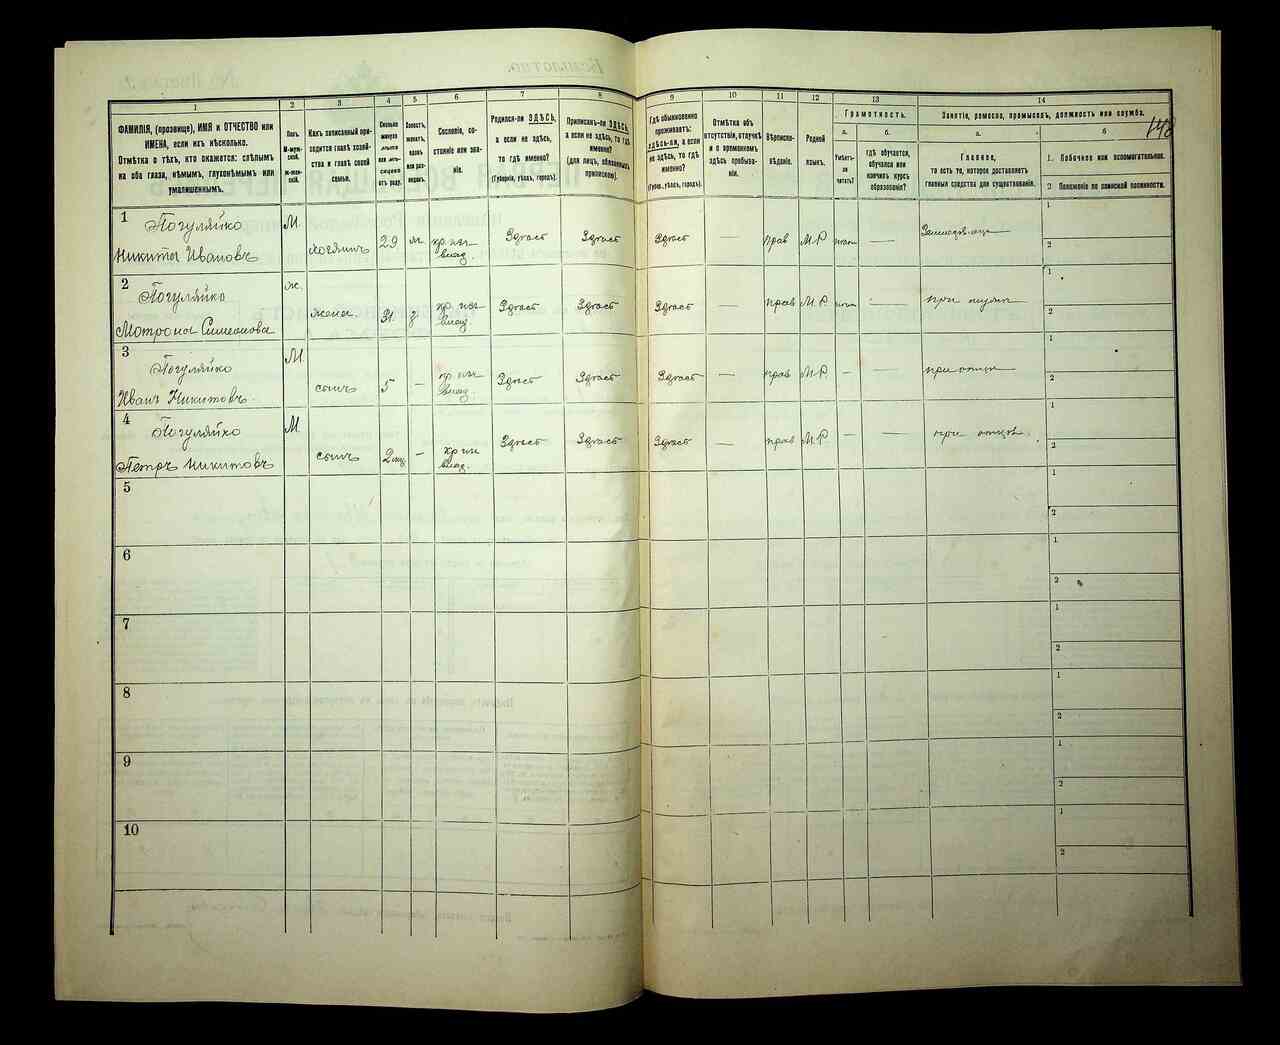 148
1
2
3
4
5
6
7
8
9
10
11
12
13
14
ФАМИЛІЯ, (прозвище), ИМЯ и ОТЧЕСТВО или
ИМЕНА, если ихъ нѣсколько.
Отмѣтка о тѣхъ, кто окажется: слѣпымъ
на оба глаза, нѣмымъ, глухонѣмымъ или
умалишеннымъ.
Полъ.
М-муж-
ской.
ж-жен-
скій.
Какъ записанный при-
ходится главѣ хозяй-
ства и главѣ своей
семьи.
Сословіе, со-
стояніе или зва-
ніе.
Родился-ли ЗДѢСЬ,
а если не здѣсь,
то гдѣ именно?
(Губернія, уѣздъ, городъ).
Приписанъ-ли ЗДѢСЬ,
а если не здѣсь, то гдѣ
именно?
(для лицъ, обязанныхъ
припискою).
Гдѣ обыкновенно
проживаетъ:
здѣсь-ли, а если
не здѣсь, то гдѣ
именно?
(Губерн., уѣздъ, городъ).
Отмѣтка объ
отсутствіи, отлучкѣ
и о временномъ
здѣсь пребыва-
ніи.
Вѣроиспо-
вѣданіе.
Родной
языкъ.
Грамотность.
а.
Умѣетъ-
ли
читать?
б.
гдѣ обучается,
обучался или
кончилъ курсъ
образованія?
Занятіе, ремесло, промыселъ, должность или служба.
а.
Главное,
то есть то, которое доставляетъ
главныя средства для существованія.
б
1. Побочное или вспомогательное.
2 Положеніе по воинской повинности.
1
Погуляйко
Никита Ивановъ
М
хозяинъ
29
м
Здѣсь
Здѣсь
Здѣсь
—
прав
М.Р
—
1
2
2
Погуляйко
Мотрона Симеонова
ж.
жена
31
Здѣсь
Здѣсь
Здѣсь
—
прав
М.Р
—
при мужѣ
1
2
3
Погуляйко
Иванъ Никитовъ
М
сынъ
5
—
Здѣсь
Здѣсь
Здѣсь
—
прав
М.Р.
—
—
при отцѣ
1
2
4
Погуляйко
Петръ Никитовъ
М
сынъ
—
Здѣсь
Здѣсь
Здѣсь
—
прав
М.Р
—
—
при отцѣ
1
2
5
1
2
6
1
2
7
1
2
8
1
2
9
1
2
10
1
2